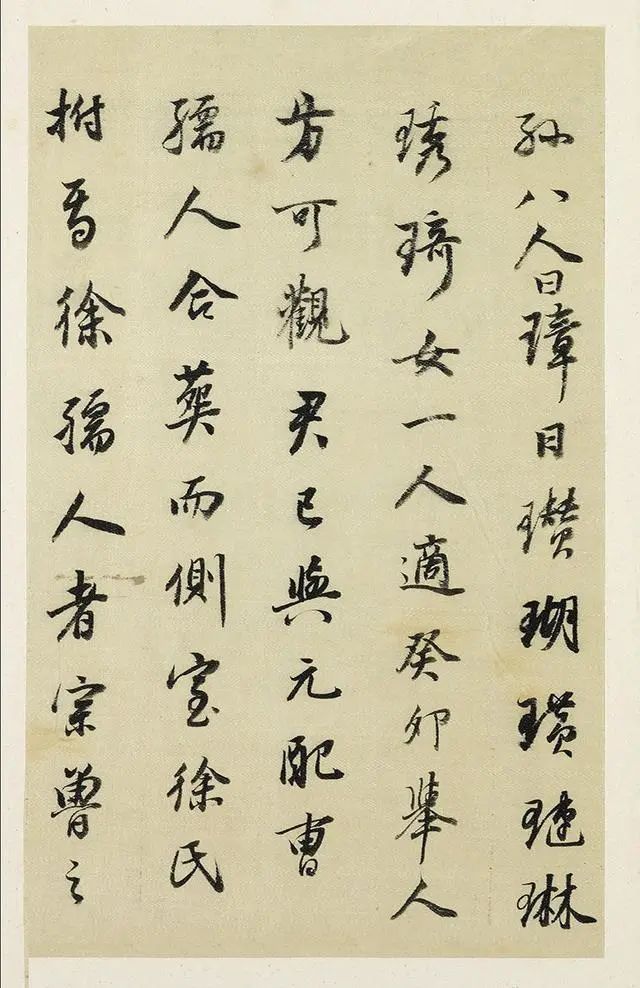 孙八人曰璋曰瓒瑚璜琎琳
琇琦女一人適癸卯舉人
方可觀君已與元配曹
孺人合葬而側室徐氏
柎焉徐孺人者宗魯之